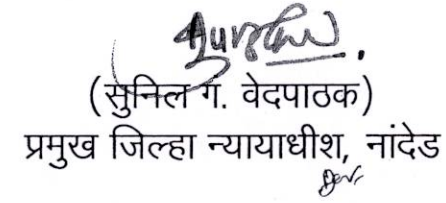 (सुनिल ग. वेदपाठक)
प्रमुख जिल्हा न्यायाधीश, नांदेड